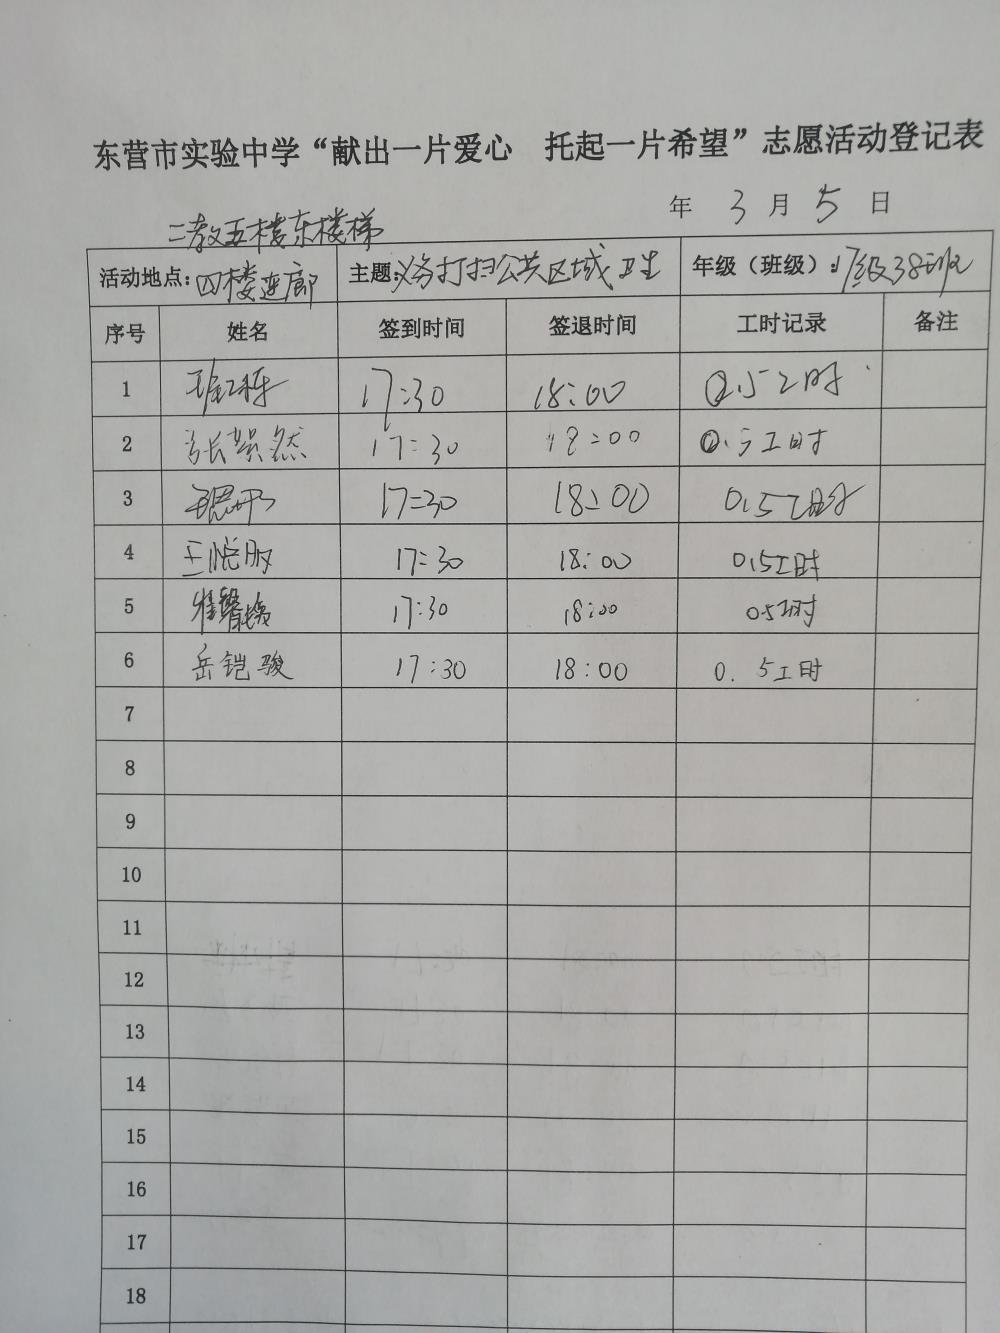 东营市实验中学“献出一片爱心 托起一片希望”志愿活动登记表
年 3 月 5 日
二教五楼东楼梯
活动地点: 四楼连廊 主题: 义务打扫公共区域卫生 年级（班级）: 17级38班
序号 姓名 签到时间 签退时间 工时记录 备注
1 17:30 18:00 0.5工时
2 张贺然 17:30 18:00 0.5工时
3 17:30 18:00 0.5工时
4 王悦 17:30 18:00 0.5工时
5 17:30 18:00 0.5工时
6 岳铠骏 17:30 18:00 0.5工时
7
8
9
10
11
12
13
14
15
16
17
18